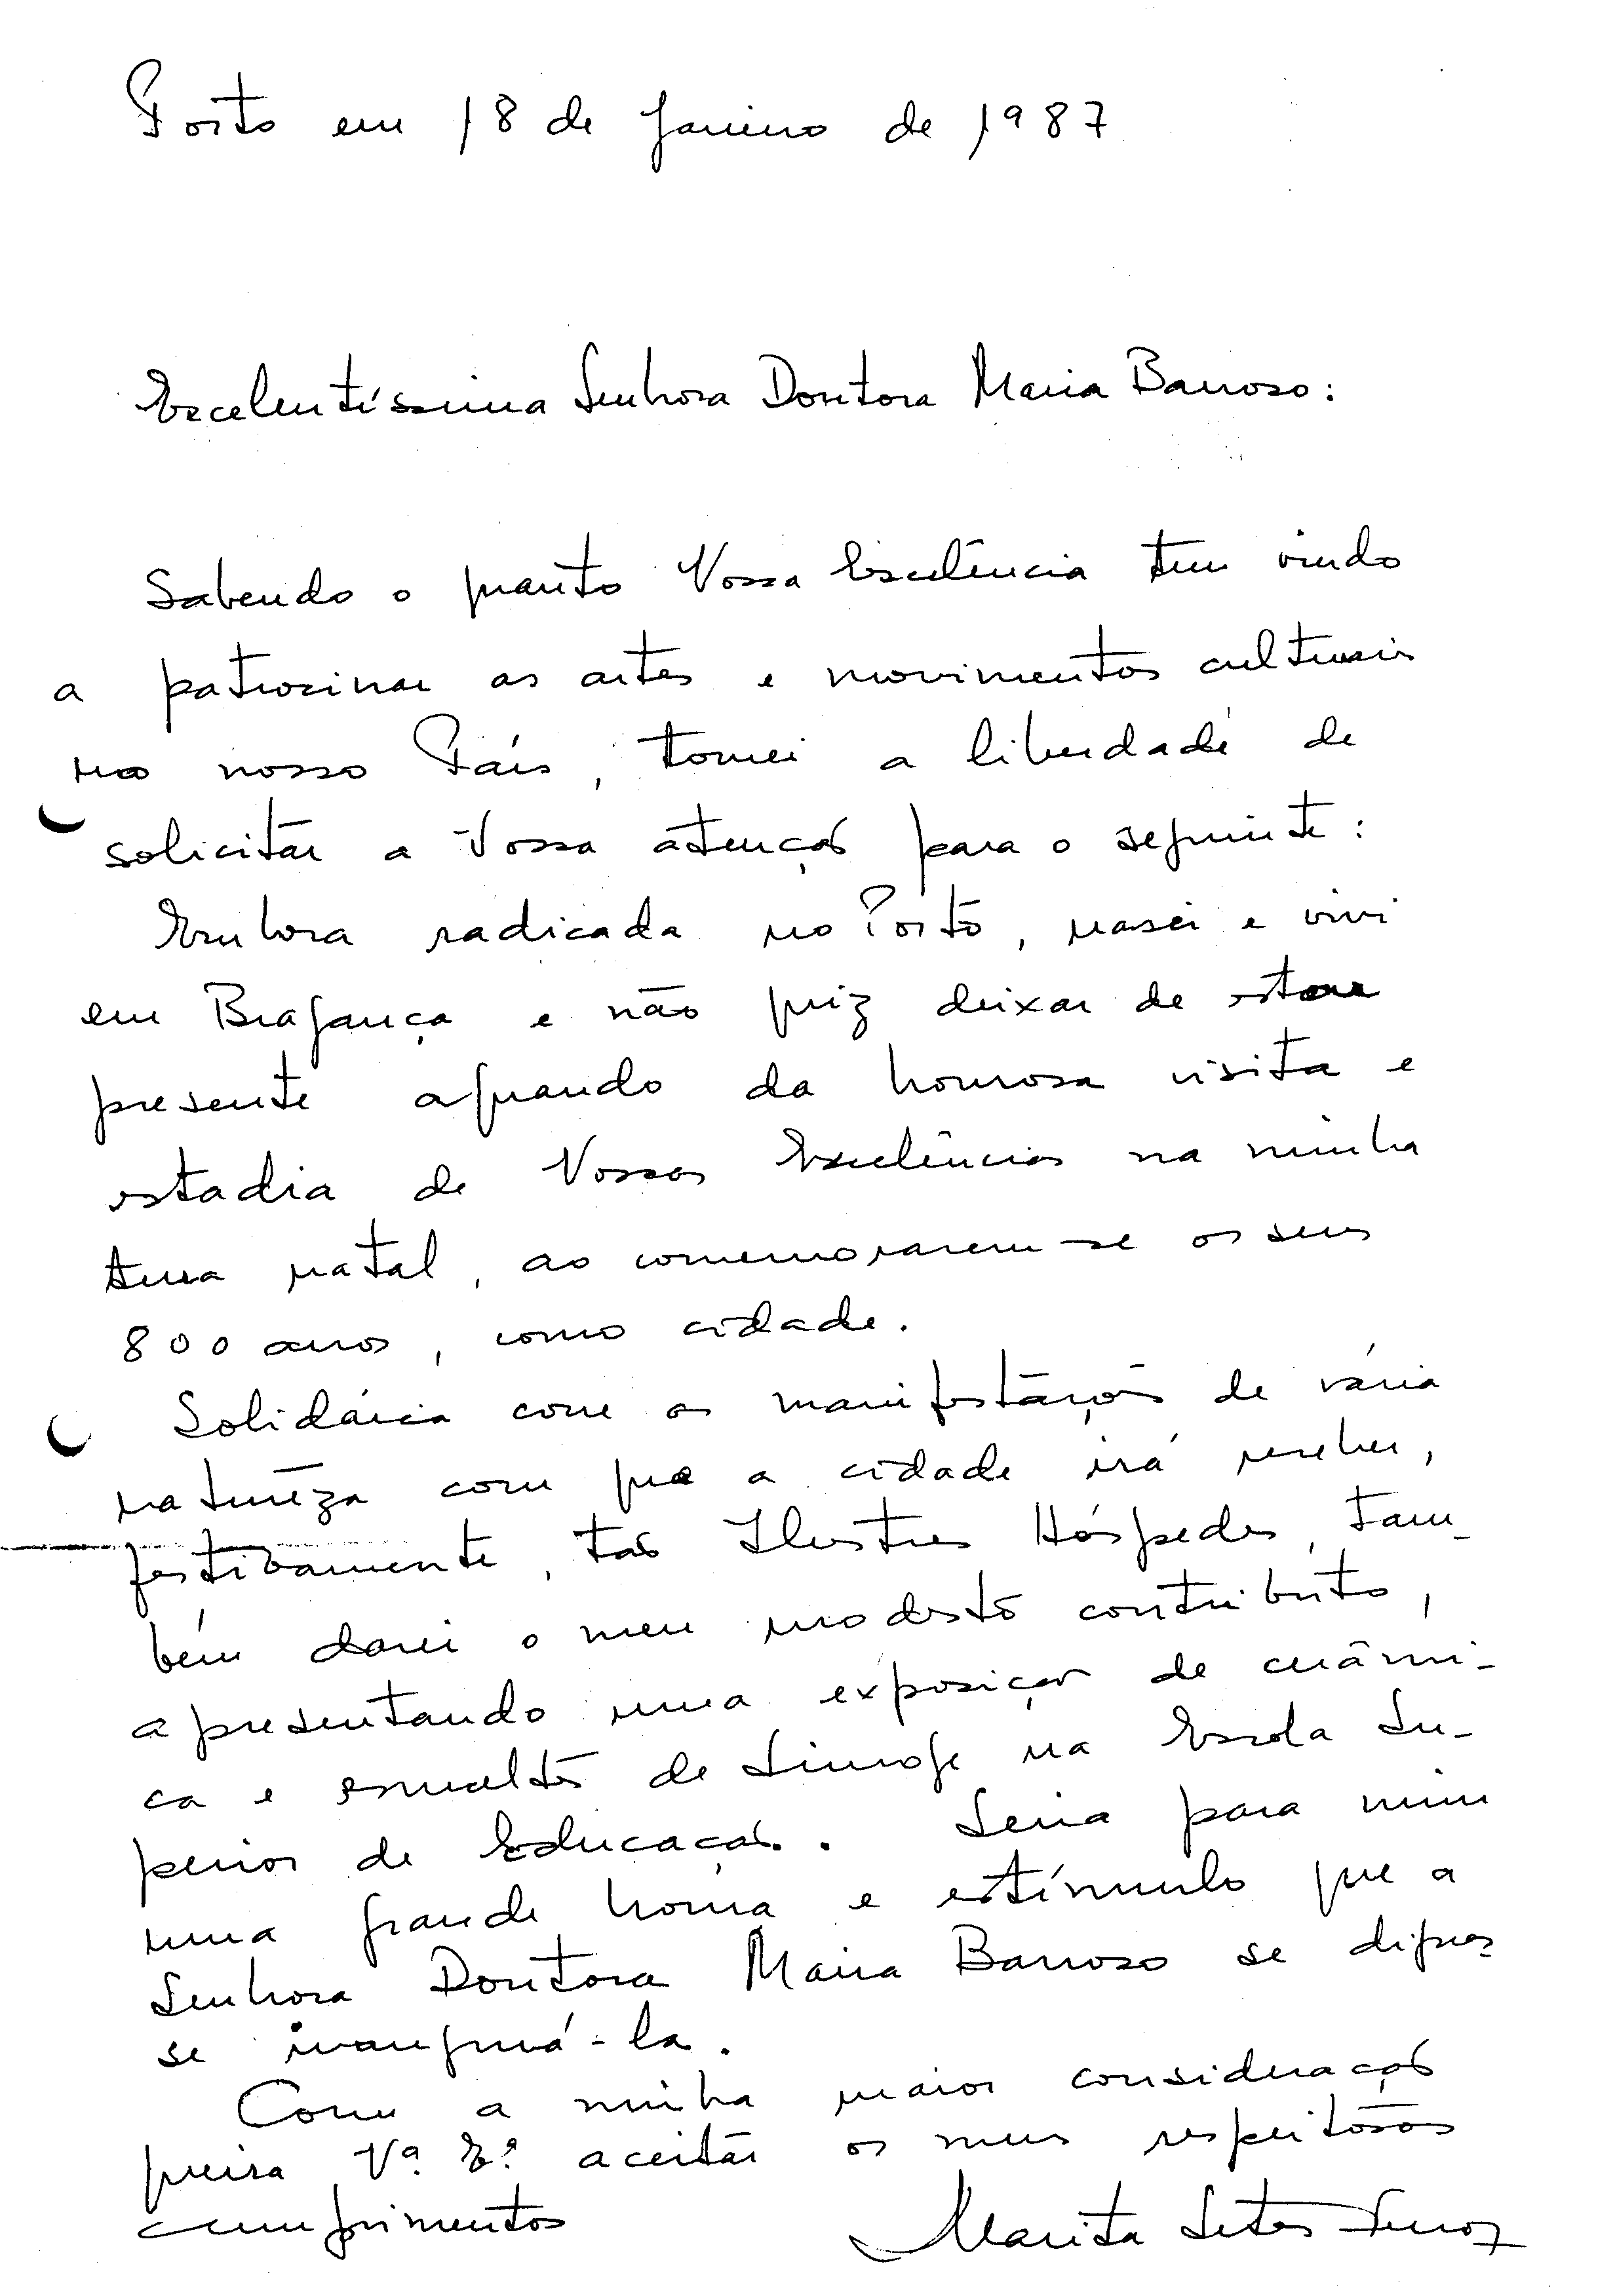 Porto em 18 de Janeiro de 1987
Excelentíssima Senhora Doutora Maria Barroso:
Sabendo o quanto Vossa Excelência tem vindo
a patrocinar as artes e movimentos culturais
no nosso País, tomei a liberdade de
solicitar a Vossa atenção para o seguinte:
Embora radicada no Porto, nasci e vivi
em Bragança e não quiz deixar de estar
presente aquando da honrosa visita e
estadia de Vossas Excelências na minha
terra natal, ao comemorarem-se os seus
800 anos, como cidade.
Solidária com as manifestações de vária
natureza com que a cidade irá receber,
festivamente, tão Ilustres Hóspedes, tam-
bém darei o meu modesto contributo,
apresentando uma exposição de cerâmi-
ca e esmaltes de Limoge na Escola Su-
perior de Educação. Seria para mim
uma grande honra e estímulo que a
Senhora Doutora Maria Barroso se dignas-
se inaugurá-la.
Com a minha maior consideração
queira Vª. Eª. aceitar os meus respeitosos
cumprimentos
Marita